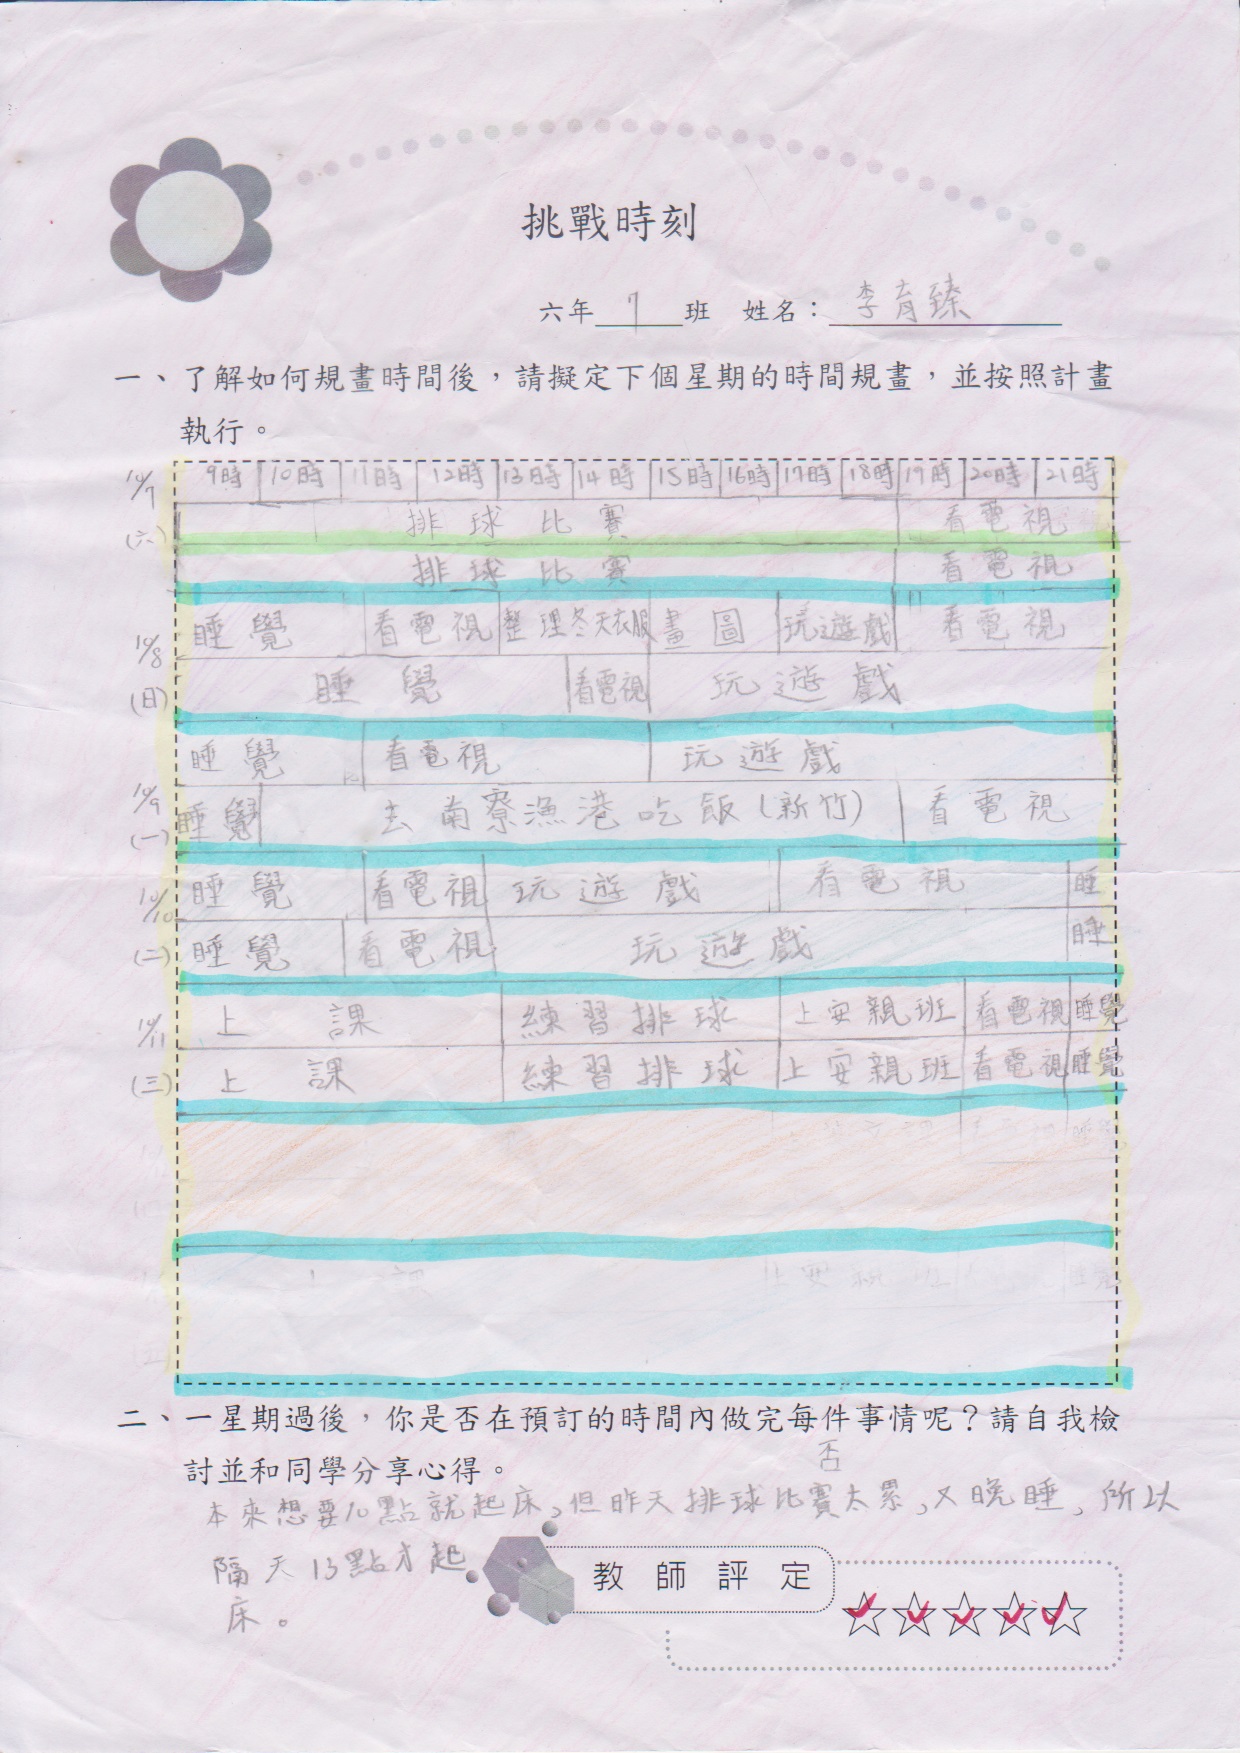 挑戰時刻
六年 7 班 姓名：李育臻
一、了解如何規畫時間後，請擬定下個星期的時間規畫，並按照計畫
執行。
10/7 9時 10時 11時 12時 13時 14時 15時 16時 17時 18時 19時 20時 21時
(六) 排球比賽 看電視
排球比賽 看電視
10/8 睡覺 看電視 整理冬天衣服 畫圖 玩遊戲 看電視
(日) 睡覺 看電視 玩遊戲
睡覺 看電視 玩遊戲
10/9 (一) 睡覺 去南寮漁港吃飯(新竹) 看電視
10/10 睡覺 看電視 玩遊戲 看電視 睡
(二) 睡覺 看電視 玩遊戲 睡
10/11 上課 練習排球 上安親班 看電視 睡覺
(三) 上課 練習排球 上安親班 看電視 睡覺
二、一星期過後，你是否在預訂的時間內做完每件事情呢？請自我檢
討並和同學分享心得。 否
本來想要10點就起床，但昨天排球比賽太累，又晚睡，所以
隔天13點才起
床。
教師評定